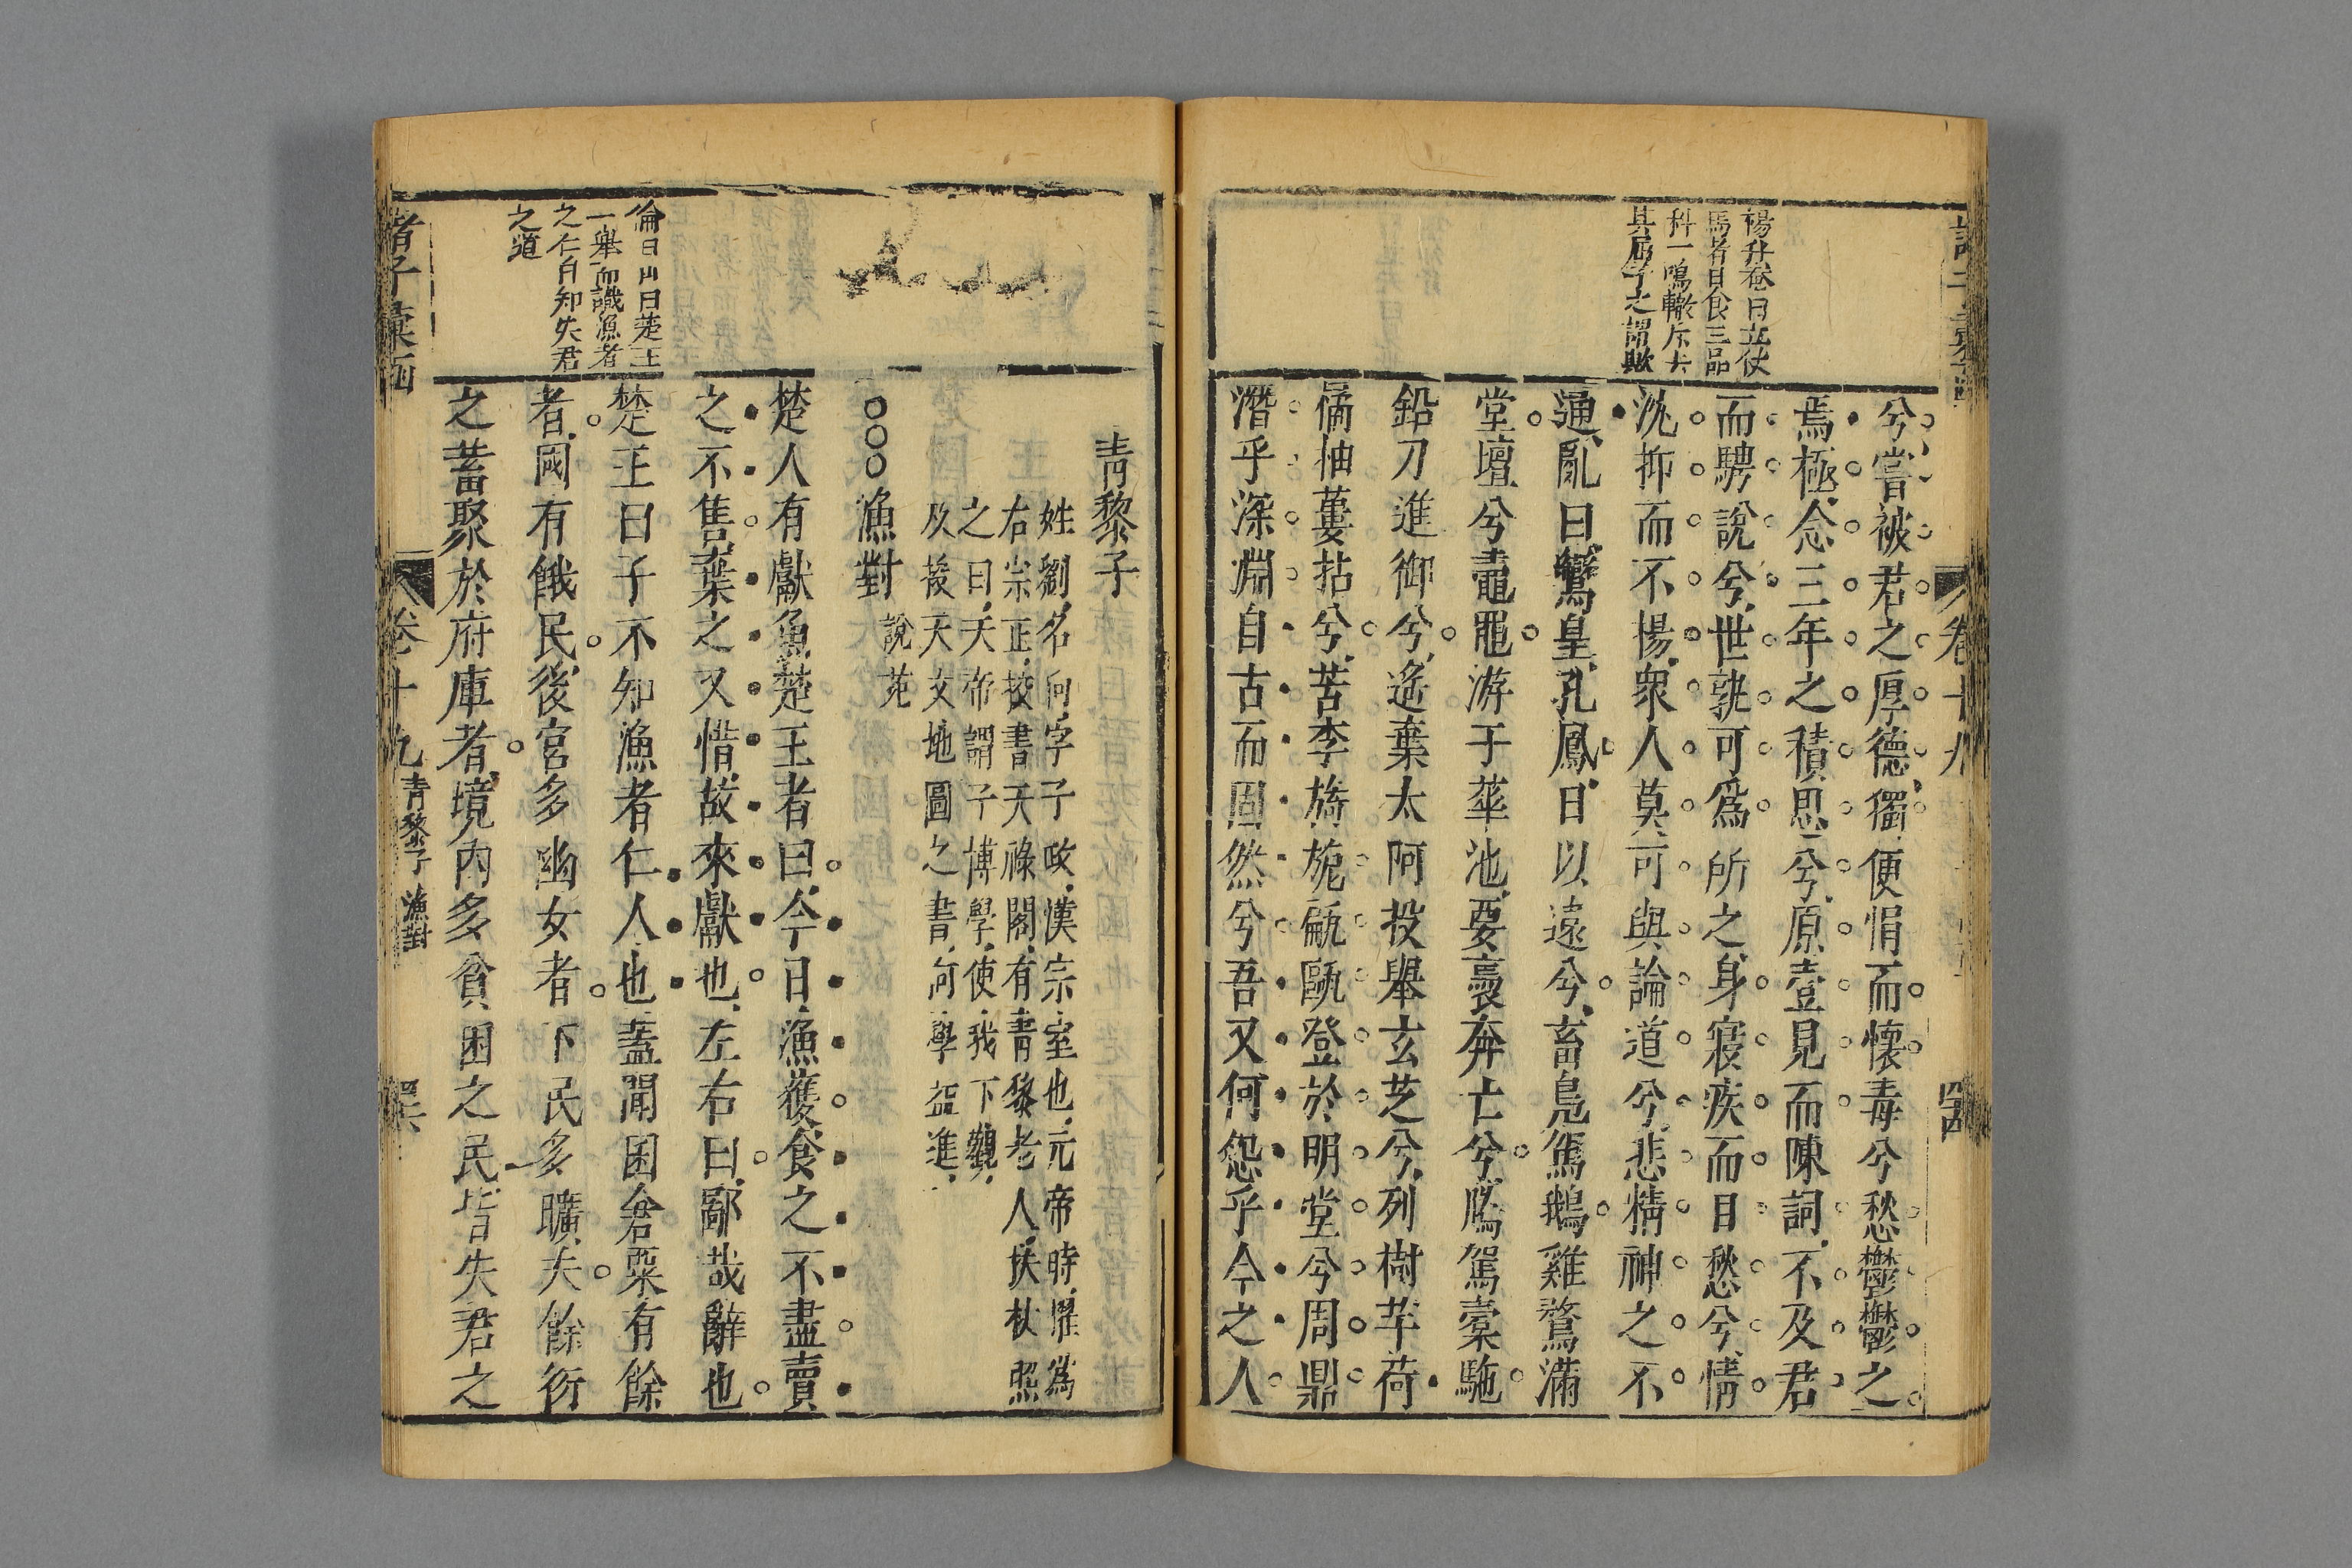 楊升菴曰立仗
馬者日食三品
料一鳴輙斥去
其屈子之謂歟
兮嘗被君之厚德獨便悁而懷毒兮愁鬱鬱之
焉極念三年之積思兮原壹見而陳詞不及君
而騁說兮世孰可爲所之身寢疾而日愁兮情
沈抑而不揚衆人莫可與論道兮悲精神之不
通亂曰鸞皇孔鳳日以遠兮畜鳧駕鵝雞鶩滿
堂壇兮鼃黽游于華池要褭奔亡兮騰駕橐駞
鉛刀進御兮遙棄太阿投舉玄芝兮列樹芋荷
橘柚萋拈兮苦李旖旎甂甌登於明堂兮周鼎
潛乎深淵自古而固然兮吾又何怨乎今之人
卷十九
青黎子
姓劉名向字子政漢宗室也元帝時擢爲
右宗正挍書天祿閣有青黎老人扶杖照
之曰天帝謂子博學使我下觀
及授天文地圖之書向學益進
○○○漁對
說苑
倫曰山曰楚王
一舉而識漁者
之仁自知失君
之道
楚人有獻魚楚王者曰今日漁獲食之不盡賣
之不售棄之又惜故來獻也左右曰鄙哉辭也
楚王曰子不知漁者仁人也蓋聞囷倉粟有餘
者國有餓民後宮多幽女者下民多曠夫餘衍
之蓄聚於府庫者境內多貧困之民皆失君之
諸子彙函
卷十九
青黎子 漁對